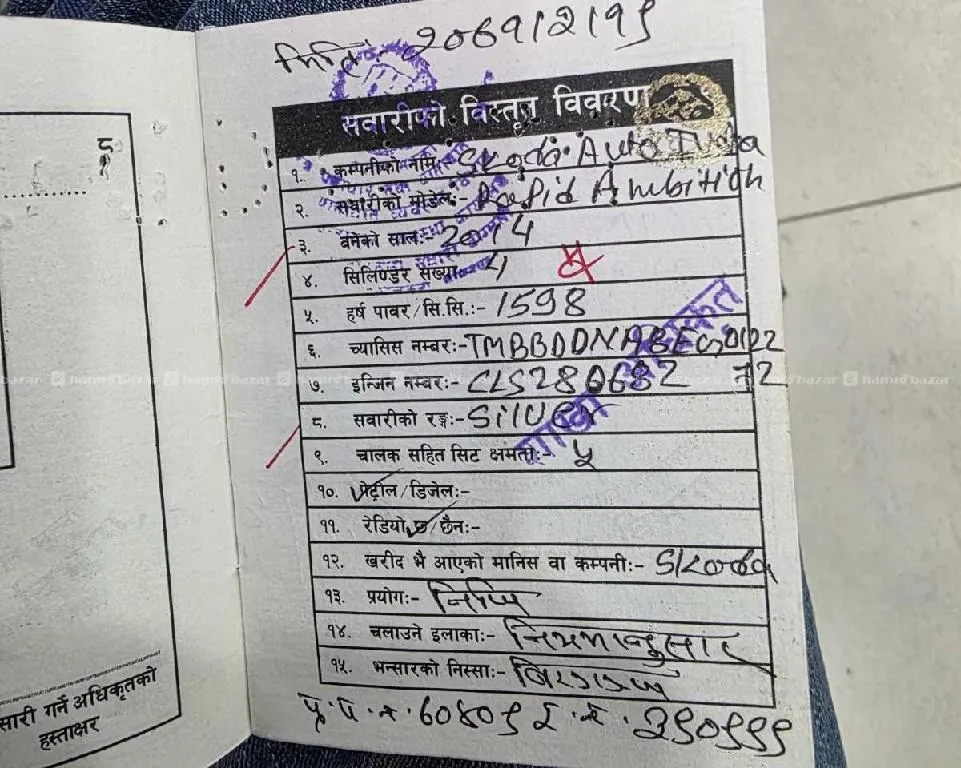 मिति:- २०७१/२/१९
सवारीको विस्तृत विवरण
१. कम्पनीको नाम Skoda Auto India
२. सवारीको मोडेल:- Rapid Ambition
३. बनेको साल:- 2014
४. सिलिण्डर संख्या 4
५. हर्ष पावर/सि.सि.:- 1598
६. च्यासिस नम्बर:-
७. इन्जिन नम्बर:-
८. सवारीको रङ्ग:- Silver
९. चालक सहित सिट क्षमता:- ५
१०. पेट्रोल/डिजेल:-
११. रेडियो छ/छैन:-
१२. खरीद भै आएको मानिस वा कम्पनी:- Skoda
१३. प्रयोग:- निजि
१४. चलाउने इलाका:- नियमानुसार
१५. भन्सारको निस्सा:- विरगञ्ज
प्र.प.न.
सारी गर्ने अधिकृतको
हस्ताक्षर
८
hamro bazar